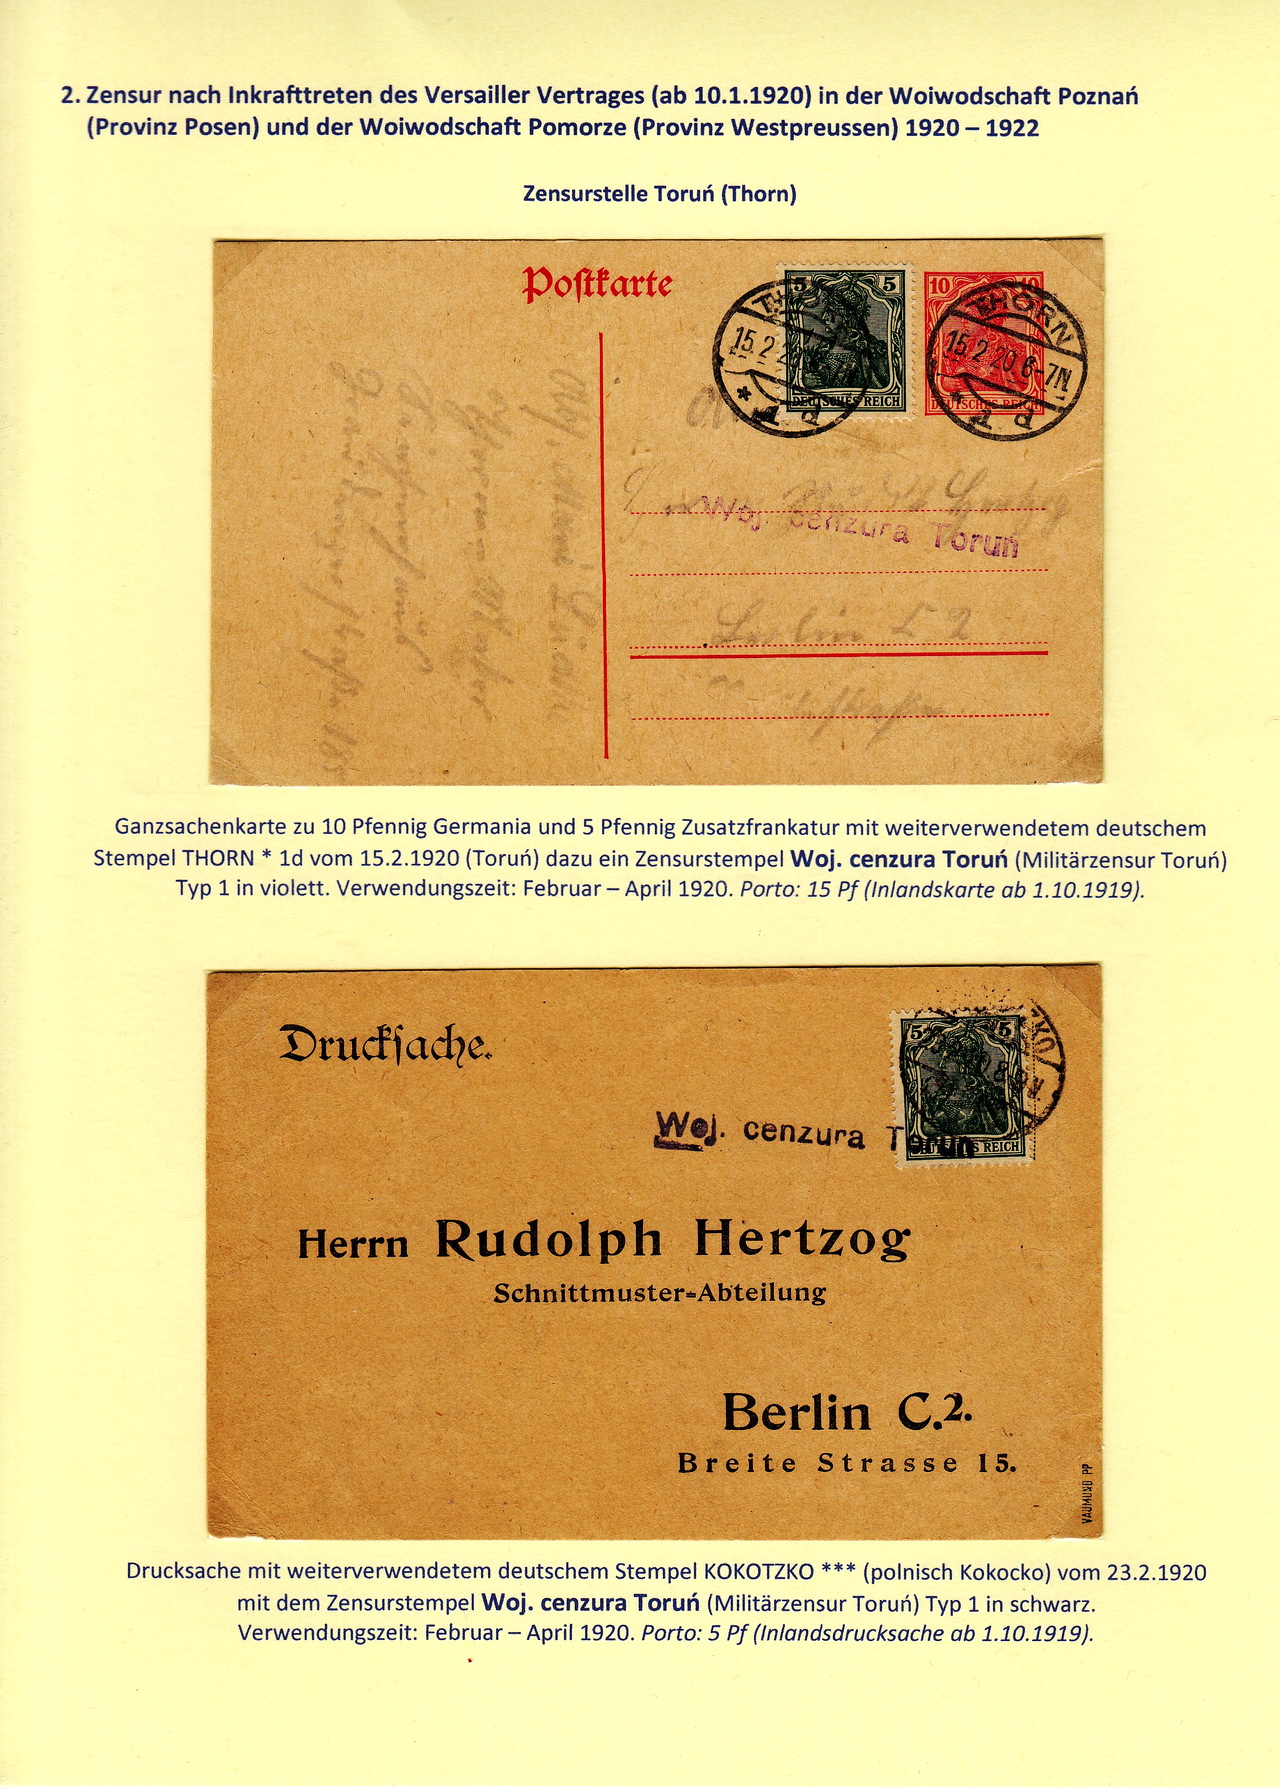 2. Zensur nach Inkrafttreten des Versailler Vertrages (ab 10.1.1920) in der Woiwodschaft Poznań
(Provinz Posen) und der Woiwodschaft Pomorze (Provinz Westpreussen) 1920 – 1922
Zensurstelle Toruń (Thorn)
Postkarte
5 5
10 10
THORN
THORN
15.2.2
15.2.20.6-7N
DEUTSCHES REICH
DEUTSCHES REICH
Woj. cenzura Toruń
Berlin C 2
Ganzsachenkarte zu 10 Pfennig Germania und 5 Pfennig Zusatzfrankatur mit weiterverwendetem deutschem
Stempel THORN * 1d vom 15.2.1920 (Toruń) dazu ein Zensurstempel Woj. cenzura Toruń (Militärzensur Toruń)
Typ 1 in violett. Verwendungszeit: Februar – April 1920. Porto: 15 Pf (Inlandskarte ab 1.10.1919).
Drucksache.
5 5
DEUTSCHES REICH
Woj. cenzura Toruń
Herrn Rudolph Hertzog
Schnittmuster=Abteilung
Berlin C.2.
Breite Strasse 15.
VAUMUND PP
Drucksache mit weiterverwendetem deutschem Stempel KOKOTZKO *** (polnisch Kokocko) vom 23.2.1920
mit dem Zensurstempel Woj. cenzura Toruń (Militärzensur Toruń) Typ 1 in schwarz.
Verwendungszeit: Februar – April 1920. Porto: 5 Pf (Inlandsdrucksache ab 1.10.1919).